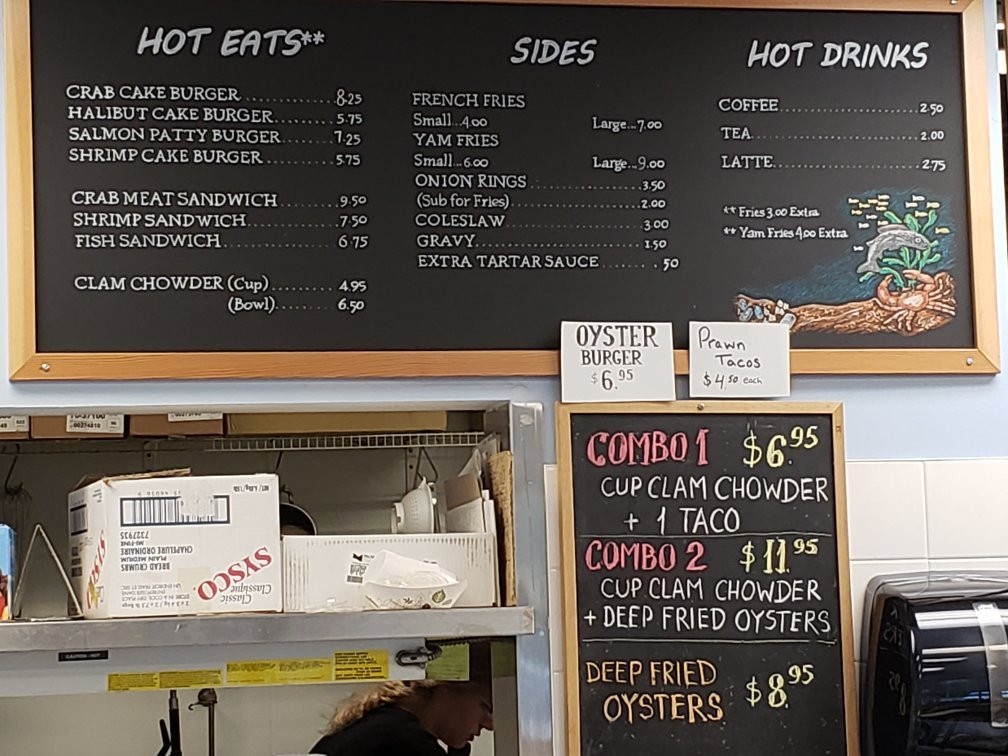 HOT EATS**
CRAB CAKE BURGER....................8.25
HALIBUT CAKE BURGER.........5.75
SALMON PATTY BURGER........7.25
SHRIMP CAKE BURGER...........5.75
CRAB MEAT SANDWICH..........9.50
SHRIMP SANDWICH...............7.50
FISH SANDWICH....................6.75
CLAM CHOWDER (Cup)...........4.95
(Bowl)..........6.50
SIDES
FRENCH FRIES
Small...4.00 Large...7.00
YAM FRIES
Small...6.00 Large...9.00
ONION RINGS....................3.50
(Sub for Fries)....................2.00
COLESLAW........................3.00
GRAVY............................1.50
EXTRA TARTAR SAUCE.........50
HOT DRINKS
COFFEE.......................2.50
TEA............................2.00
LATTE.........................2.75
** Fries 3.00 Extra
** Yam Fries 4.00 Extra
OYSTER
BURGER
$6.95
Prawn
Tacos
$4.50 each
COMBO 1 $6.95
CUP CLAM CHOWDER
+ 1 TACO
COMBO 2 $11.95
CUP CLAM CHOWDER
+ DEEP FRIED OYSTERS
DEEP FRIED
OYSTERS $8.95
SYSCO
Classic
Classique
BREAD CRUMBS
PLAIN MEDIUM
CHAPELURE ORDINAIRE
MI-FINE
7327935
CAUTION HOT